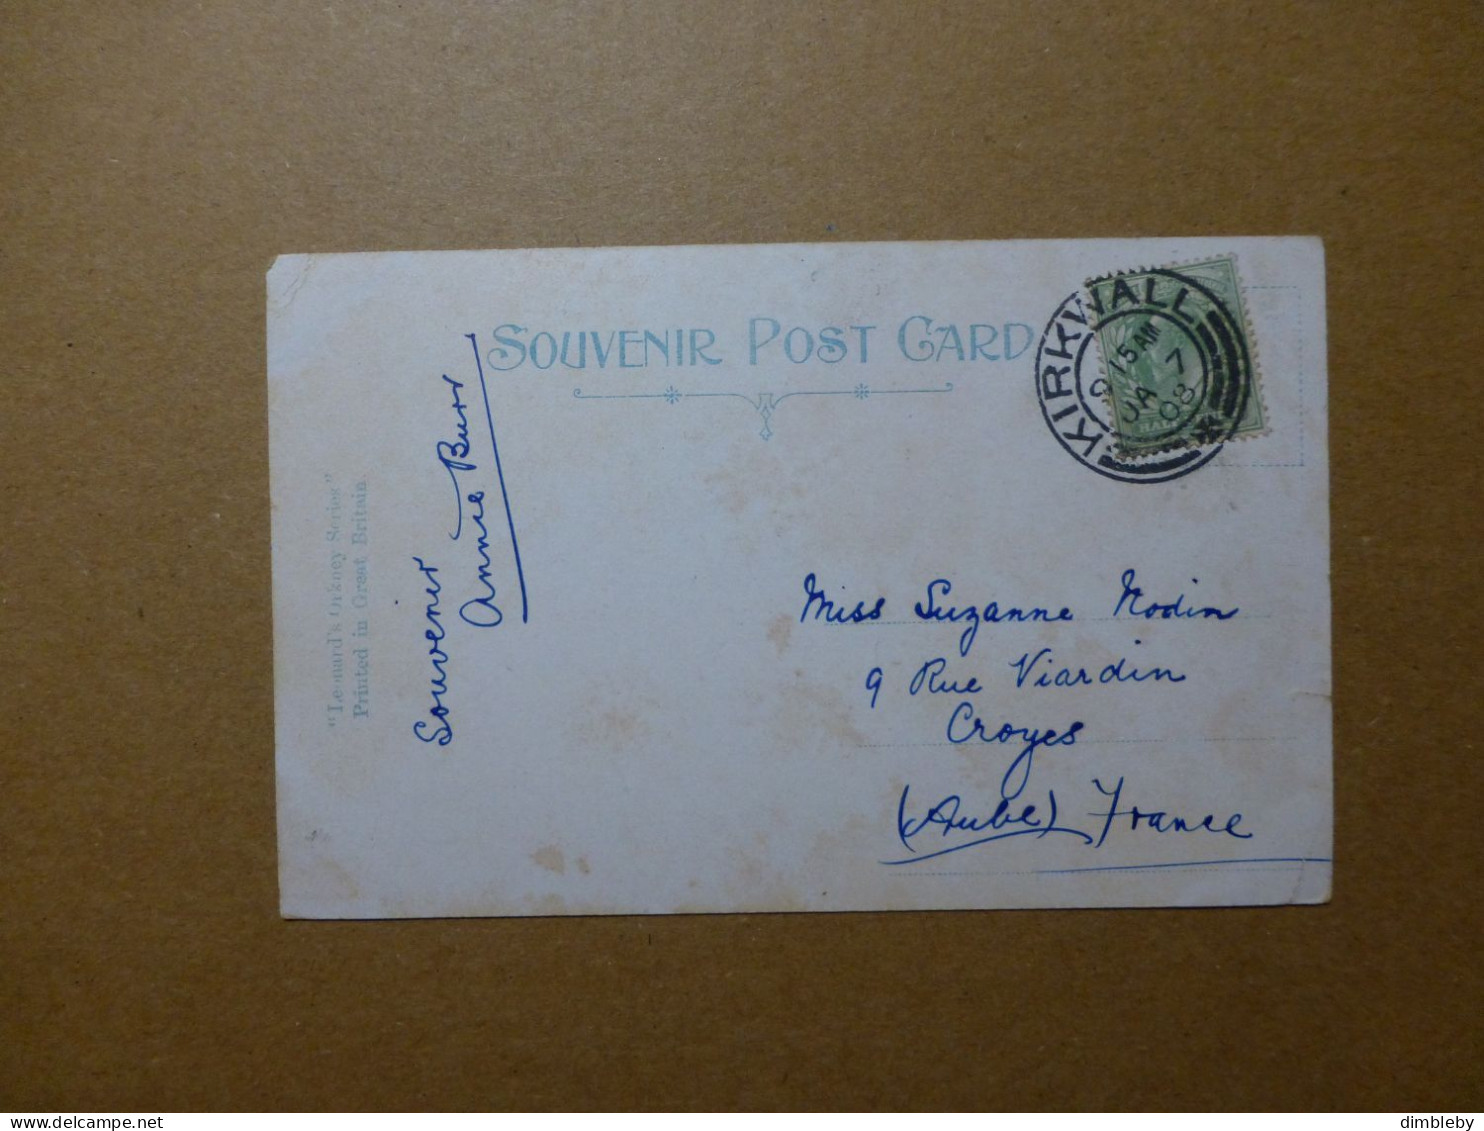 SOUVENIR POST CARD
KIRKWALL
9 15 AM
JA 7
08
HALF
"Leonard's Orkney Series"
Printed in Great Britain
Souvener
Annie Burr
Miss Suzanne Nodin
9 Rue Viardin
Croyes
(Aube) France
dimbleby